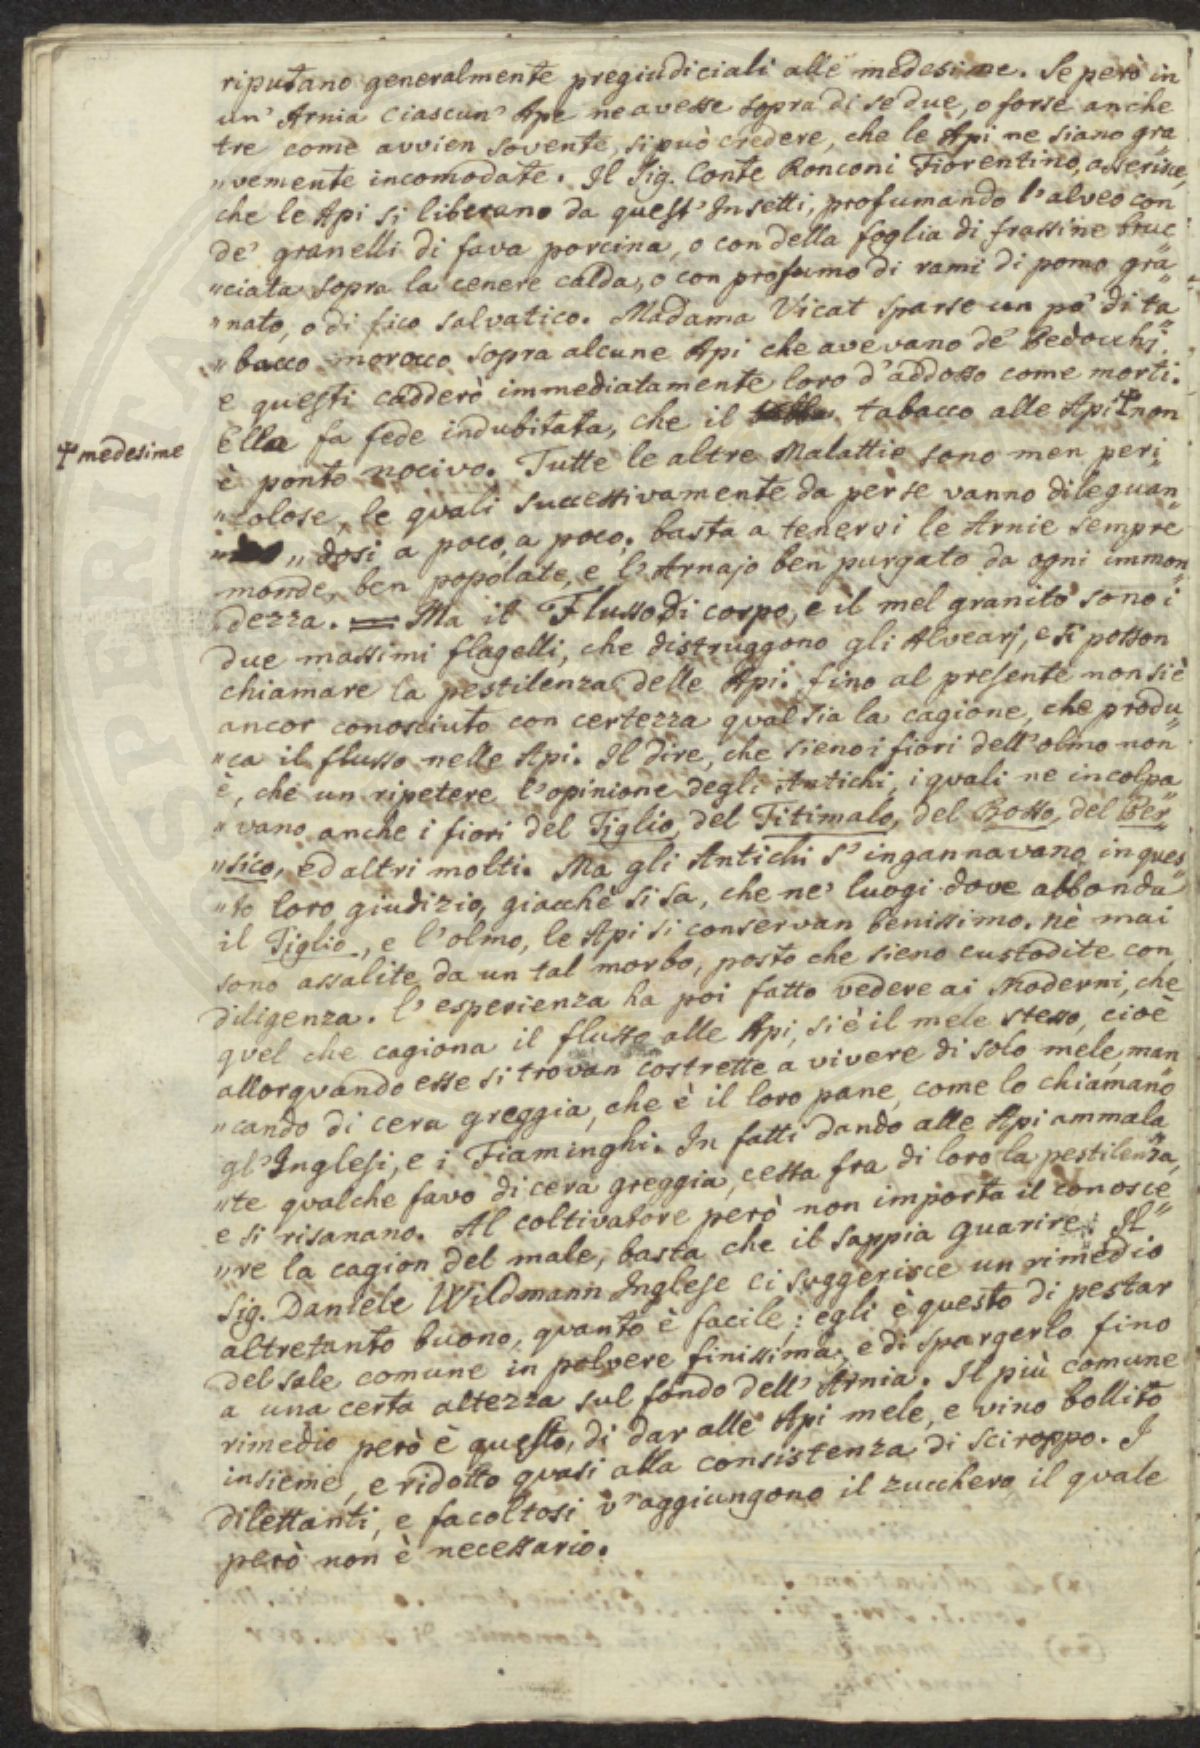 riputano generalmente pregiudiciali alle medesime. Se però in
un' Arnia ciascun' Ape ne avesse sopra di se due, o forse anche
tre come avvien sovente, si può credere, che le Api ne siano gra„
„vemente incomodate. Il Sig. Conte Ronconi Fiorentino, asserisce,
che le Api si liberano da quest' Insetti, profumando l'alveo con
de' granelli di fava porcina, o con della foglia di frassine bruc„
„ciata sopra la cenere calda, o con profumo di rami di pomo gra„
„nato, o di fico salvatico. Madama Vicat sparse un po' di ta„
„bacco morocco sopra alcune Api che avevano de' Pedocchi,
e questi cadderò immediatamente loro d'addosso come morti.
Ella fa fede indubitata, che il tabacco alle Api ✝ non
✝ medesime
è ponto nocivo. Tutte le altre Malattie sono men peri„
„colose, le quali successivamente da per se vanno dileguan„
„dosi a poco, a poco, basta a tenervi le Arnie sempre
monde, ben popolate, e l'Arnajo ben purgato da ogni immon„
dezza. = Ma il Flusso di corpo, e il mel granito sono i
due massimi flagelli, che distruggono gli Alvearj, e si posson
chiamare la pestilenza delle Api: fino al presente non si è
ancor conosciuto con certezza qual sia la cagione, che produ„
„ca il flusso nelle Api. Il dire, che sieno i fiori dell'olmo non
è, che un ripetere l'opinione degli Antichi, i quali ne incolpa„
„vano anche i fiori del Tiglio, del Titimalo, del Bosso, del Per„
„sico, ed altri molti. Ma gli Antichi s'ingannavano in ques„
„to loro giudizio, giacchè si sa, che ne' luogi dove abbonda
il Tiglio, e l'olmo, le Api si conservan benissimo, nè mai
sono assalite da un tal morbo, posto che sieno custodite con
diligenza. L'esperienza ha poi fatto vedere ai Moderni, che
quel che cagiona il flusso alle Api, si è il mele stesso, cioè
allorquando esse si trovan costrette a vivere di solo mele, man„
„cando di cera greggia, che è il loro pane, come lo chiamano
gl'Inglesi, e i Fiaminghi. In fatti dando alle Api ammala„
„te qualche favo di cera greggia, cessa fra di loro la pestilenza,
e si risanano. Al coltivatore però non importa il conosce„
„re la cagion del male, basta che il sappia guarire: Il
Sig. Daniele Wildmann Inglese ci suggerisce un rimedio
altretanto buono, quanto è facile; egli è questo di pestar
del sale comune in polvere finissima, e di spargerlo fino
a una certa altezza sul fondo dell'Arnia. Il più comune
rimedio però è questo, di dar alle Api mele, e vino bollito
insieme, e ridotto quasi alla consistenza di sciroppo. I
dilettanti, e facoltosi v'aggiungono il zucchero il quale
però non è necessario.